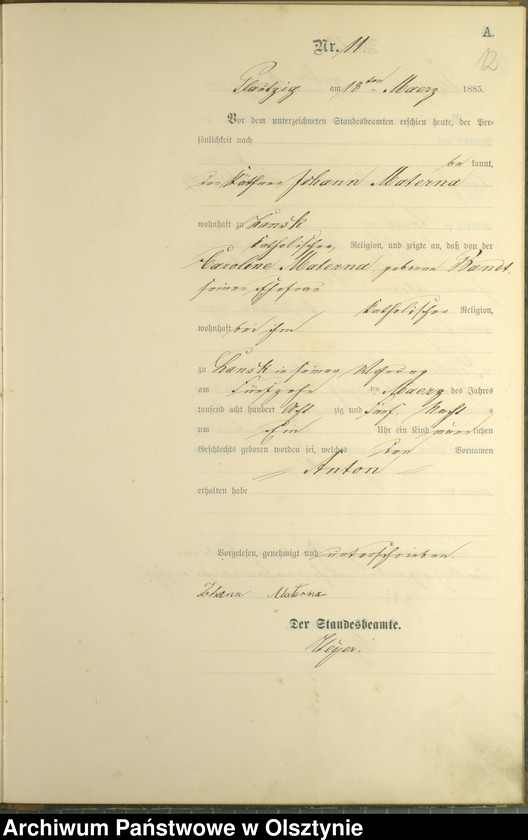 A.
12
Nr. 11
Plautzig am 18ten Maerz 1885.
Vor dem unterzeichneten Standesbeamten erschien heute, der Per-
sönlichkeit nach
be kannt,
der Käthner Johann Materna
wohnhaft zu Lansk
katholischer Religion, und zeigte an, daß von der
Caroline Materna, geborne
seiner Ehefrau
katholischer Religion,
wohnhaft bei ihm
zu Lansk in seiner Wohnung
am fünfzehn ten Maerz des Jahres
tausend acht hundert Acht zig und fünf, Nachts
um Ein Uhr ein Kind männlichen
Geschlechts geboren worden sei, welches den Vornamen
Anton
erhalten habe
Vorgelesen, genehmigt und unterschrieben
Johann Materna
Der Standesbeamte.
Archiwum Państwowe w Olsztynie